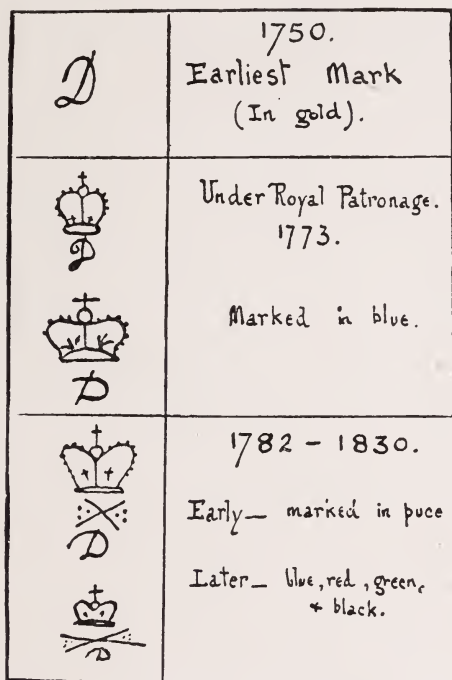 D
1750.
Earliest Mark
(In gold).
D
Under Royal Patronage.
1773.
D
Marked in blue.
D
1782 - 1830.
Early— marked in puce
D
Later— blue, red, green,
& black.